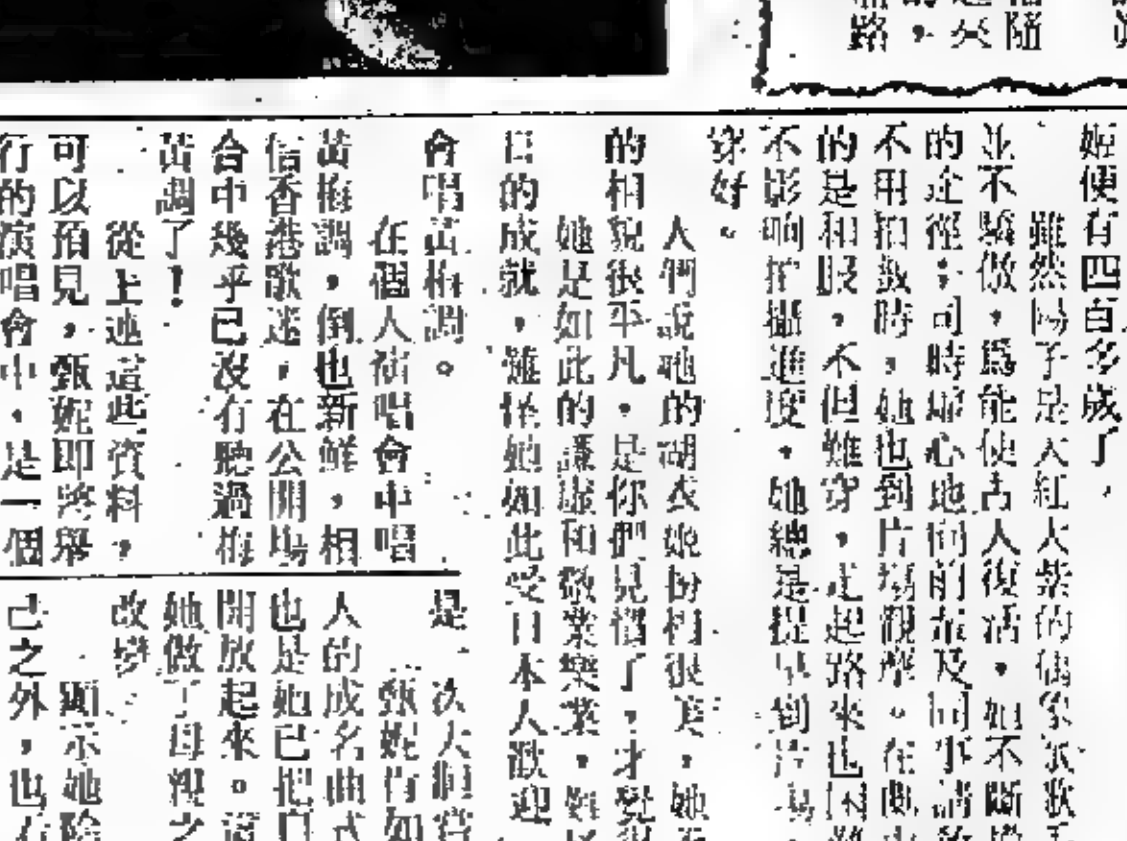 路，
隨
姬便有四百多歲了，
雖然陽子是大紅大紫的偶像派歌
並不驕傲，爲能使古人復活，如不斷
的途徑；同時虛心地向前輩及同事請
不用拍戲時，她也到片場觀摩。在戲
的是和服，不但難穿，走起路來也困難
不影响拍攝進度，她總是提早到片場，
穿好。
人們說她的胡衣姬扮相很美，她
的相貌很平凡，是你們見慣了，才覺
她是如此的謙虛和敬業樂業，
日的成就，難怪她如此受日本人歡迎
會唱黃梅調。
在個人演唱會中唱
黃梅調，倒也新鮮，相
信香港歌迷，在公開場
合中幾乎已沒有聽過梅
黃調了！
從上述這些資料，
可以預見，甄妮即將舉
行的演唱會中，是一個
是次大膽嘗
甄妮肯如
人的成名曲式
也是她已把自
開放起來。這
她做了母親之
改變
顯示她除
己之外，也有